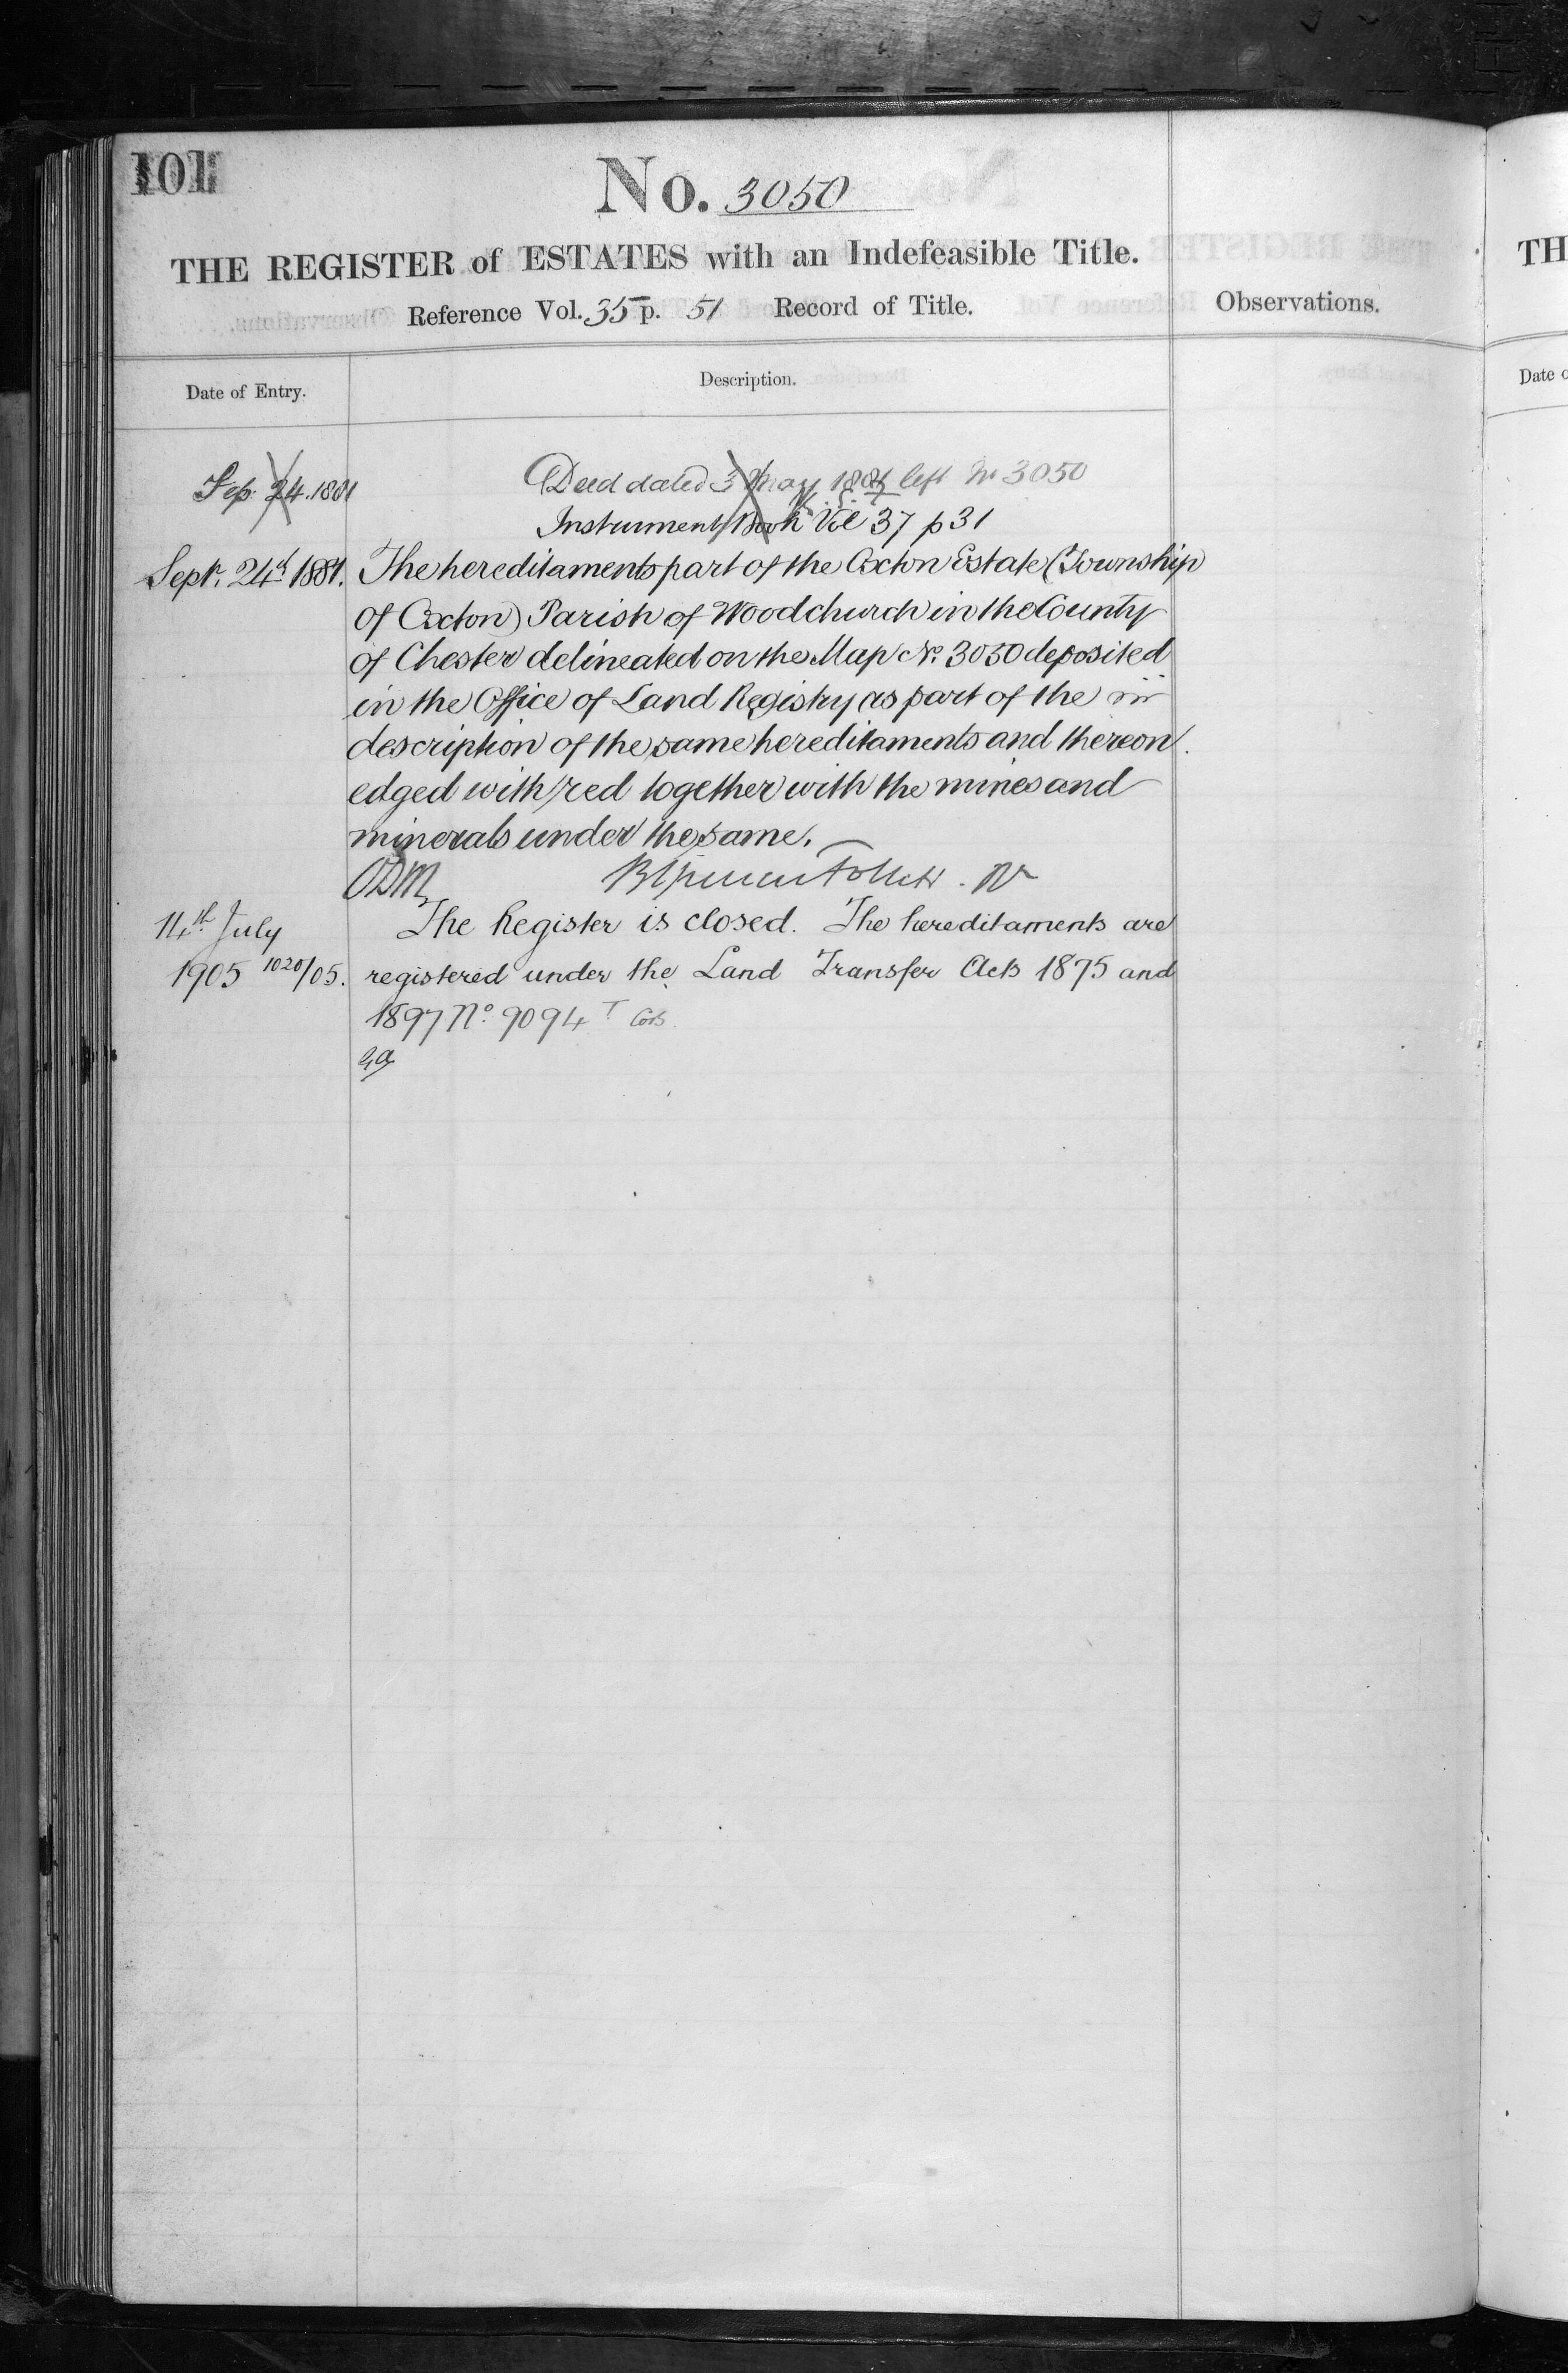 101
No. 3050
THE REGISTER of ESTATES with an Indefeasible Title.
Reference Vol. 35 p. 51 Record of Title.
Observations.
Date of Entry.
Description.
Sep: 24. 1881
Deed dated 3 May 1881 left Nr 3050
Instrument Book Vol 37 p 31
Sept. 24th 1881. The hereditaments part of the Oxton Estate (Township
of Oxton) Parish of Woodchurch in the County
of Chester delineated on the Map No. 3050 deposited
in the Office of Land Registry as part of the
description of the same hereditaments and thereon
edged with red together with the mines and
minerals under the same.
14th July The Register is closed. The hereditaments are
1905 1020/05. registered under the Land Transfer Acts 1875 and
1897 No 9094
TH
Date o